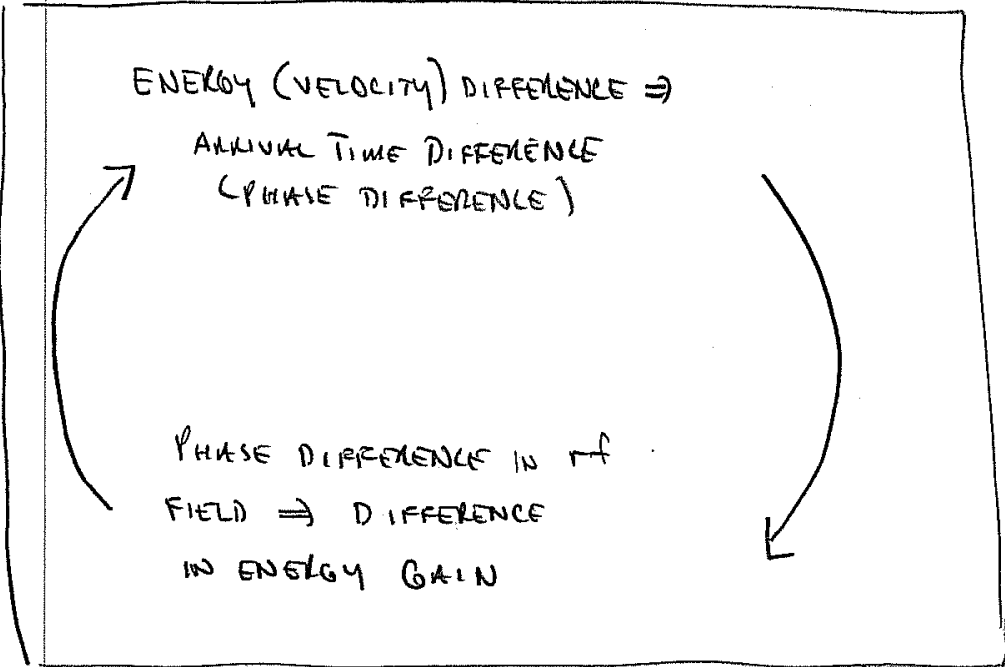 ENERGY (VELOCITY) DIFFERENCE ⇒
ARRIVAL TIME DIFFERENCE
(PHASE DIFFERENCE)
PHASE DIFFERENCE IN rf
FIELD ⇒ DIFFERENCE
IN ENERGY GAIN